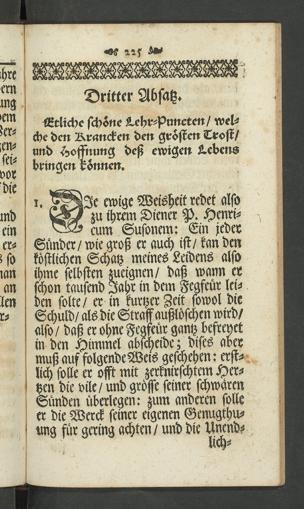 225
Dritter Absatz.
Etliche schöne Lehr-Puncten/ wel-
che den Krancken den grösten Trost/
und Hoffnung deß ewigen Lebens
bringen können.
1. DIe ewige Weisheit redet also
zu ihrem Diener P. Henri-
cum Susonem: Ein jeder
Sünder/ wie groß er auch ist/ kan den
köstlichen Schatz meines Leidens also
ihme selbsten zueignen/ daß wann er
schon tausend Jahr in dem Fegfeür lei-
den solte/ er in kurtzer Zeit sowol die
Schuld/ als die Straff außlöschen wird/
also/ daß er ohne Fegfeür gantz befreyet
in den Himmel abscheide; dises aber
muß auf folgende Weis geschehen: erst-
lich solle er offt mit zerknirschtem Her-
tzen die vile/ und grösse seiner schwären
Sünden überlegen: zum anderen solle
er die Werck seiner eigenen Genugthu-
ung für gering achten/ und die Unend-
lich-